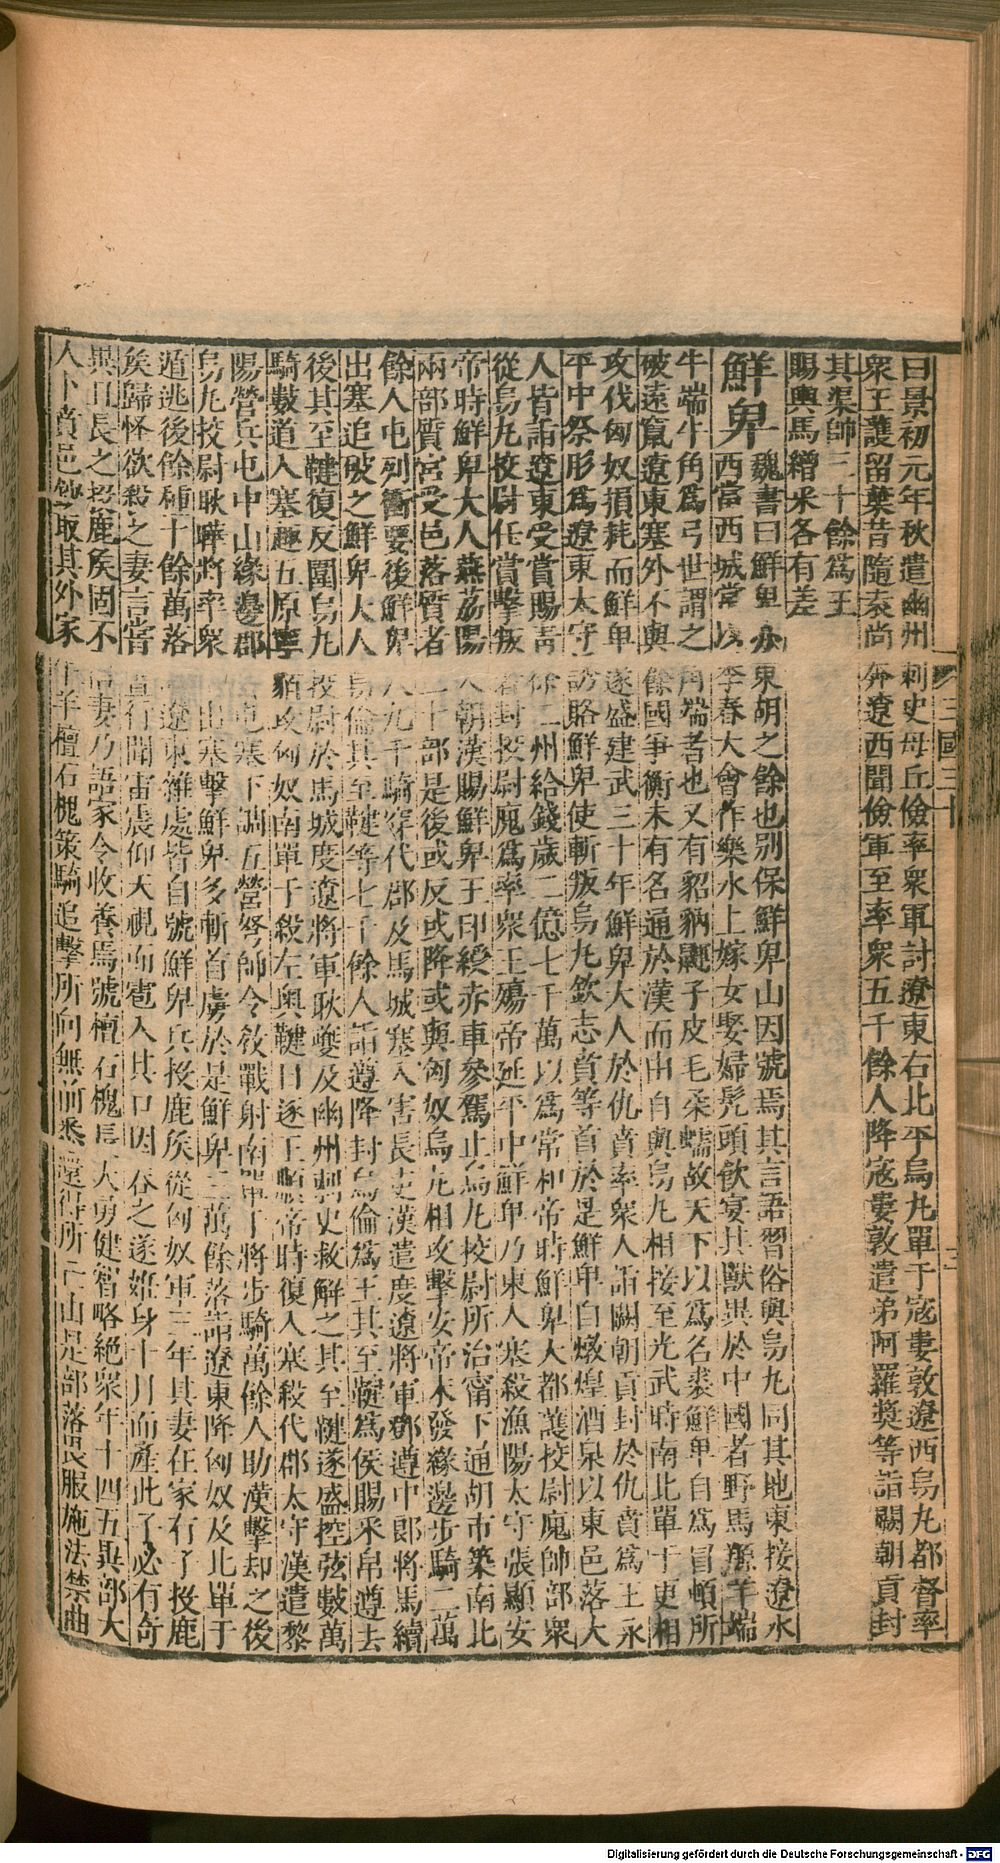 曰景初元年秋遣幽州刺史毋丘儉率衆軍討遼東右北平烏丸單于寇婁敦遼西烏丸都督率
衆王護留葉昔隨袁尚奔遼西聞儉軍至率衆五千餘人降寇婁敦遣弟阿羅獎等詣闕朝貢封
其渠帥三十餘爲王
賜輿馬繒采各有差
鮮卑 魏書曰鮮卑亦東胡之餘也別保鮮卑山因號焉其言語習俗與烏丸同其地東接遼水
西當西城常以季春大會作樂水上嫁女娶婦髡頭飲宴其獸異於中國者野馬羱羊端
牛端牛角爲弓世謂之角端者也又有貂豽鼲子皮毛柔蠕故天下以爲名裘鮮卑自爲冒頓所
破遠竄遼東塞外不與餘國爭衡未有名通於漢而由自與烏丸相接至光武時南北單于更相
攻伐匈奴損耗而鮮卑遂盛建武三十年鮮卑大人於仇賁率衆人詣闕朝貢封於仇賁爲王永
平中祭肜爲遼東太守誘賂鮮卑使斬叛烏丸欽志賁等首於是鮮卑自燉煌酒泉以東邑落大
人皆詣遼東受賞賜青徐二州給錢歲二億七千萬以爲常和帝時鮮卑大都護校尉廆帥部衆
從烏丸校尉任賞擊叛者封校尉廆爲率衆王殤帝延平中鮮卑乃東入塞殺漁陽太守張顯安
帝時鮮卑大人燕荔陽入朝漢賜鮮卑王印綬赤車參駕止烏丸校尉所治甯下通胡市築南北
兩部質宮受邑落質者二十部是後或反或降或與匈奴烏丸相攻擊安帝末發緣邊步騎二萬
餘人屯列衝要後鮮卑八九千騎穿代郡及馬城塞入害長吏漢遣度遼將軍鄧遵中郎將馬續
出塞追破之鮮卑大人烏倫其至鞬等七千餘人詣遵降封烏倫爲王其至鞬爲侯賜采帛遵去
後其至鞬復反圍烏丸校尉於馬城度遼將軍耿夔及幽州刺史救解之其至鞬遂盛控弦數萬
騎數道入塞趣五原寧貊攻匈奴南單于殺左奧鞬日逐王順帝時復入塞殺代郡太守漢遣黎
陽營兵屯中山緣邊郡兵屯塞下調五營弩帥令教戰射南單于將步騎萬餘人助漢擊却之後
烏丸校尉耿曄將率衆王出塞擊鮮卑多斬首虜於是鮮卑三萬餘落詣遼東降匈奴及北單于
遁逃後餘種十餘萬落詣遼東雜處皆自號鮮卑兵投鹿侯從匈奴軍三年其妻在家有子投鹿
侯歸怪欲殺之妻言嘗晝行聞雷震仰天視而雹入其口因吞之遂妊身十月而產此子必有奇
異且長之投鹿侯固不信妻乃語家令收養焉號檀石槐長大勇健智略絕衆年十四五異部大
人卜賁邑鈔取其外家牛羊檀石槐策騎追擊所向無前悉還得所亡由是部落畏服施法禁曲
三國三十
Digitalisierung gefördert durch die Deutsche Forschungsgemeinschaft - DFG